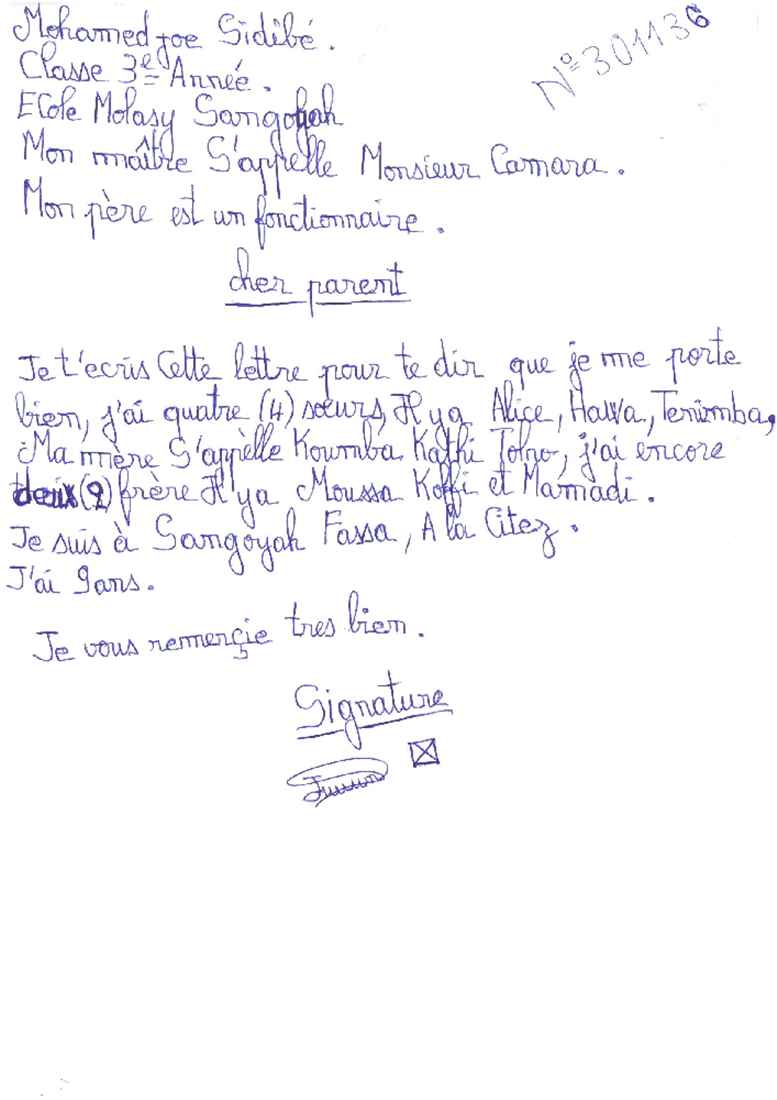 Mohamed joe Sidibé.
N° 301136
Classe 3e Année.
Ecole Molasy Sangoyah
Mon maître S'appelle Monsieur Camara.
Mon père est un fonctionnaire.
cher parent
Je t'ecris Cette lettre pour te dir que je me porte
bien, j'ai quatre (4) sœurs, Il ya Alice, Hawa, Tenimba,
Ma mère S'appèlle Koumba Kathi Tolno, j'ai encore
deux (2) frère Il'ya Moussa Koffi et Mamadi.
Je suis à Sangoyah Fassa, A la Citez.
J'ai 9ans.
Je vous remerçie tres bien.
Signature